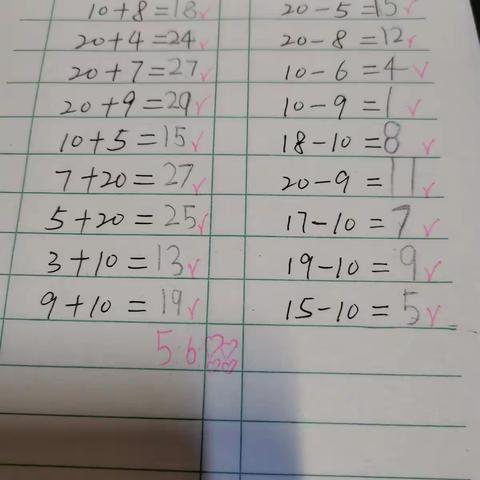 10+8=18 20-5=15
20+4=24 20-8=12
20+7=27 10-6=4
20+9=29 10-9=1
10+5=15 18-10=8
7+20=27 20-9=11
5+20=25 17-10=7
3+10=13 19-10=9
9+10=19 15-10=5
5.6.